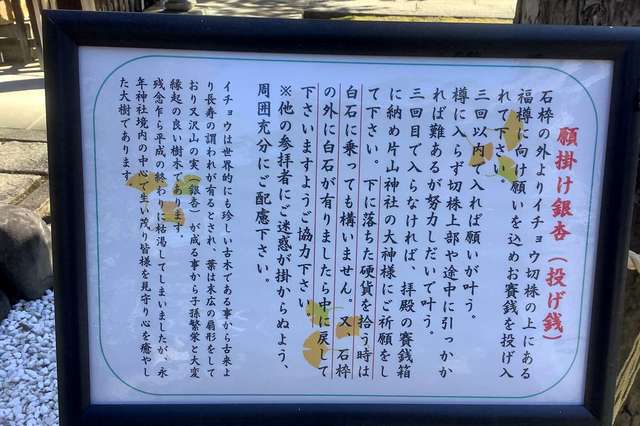 願掛け銀杏（投げ銭）
石枠の外よりイチョウ切株の上にある
福樽に向け願いを込めお賽銭を投げ入
れて下さい。
三回以内で入れば願いが叶う。
樽に入らず切株上部や途中に引っかか
れば難あるが努力しだいで叶う。
三回目で入らなければ、拝殿の賽銭箱
に納め片山神社の大神様にご祈願をし
て下さい。下に落ちた硬貨を拾う時は
白石に乗っても構いません。又、石枠
の外に白石が有りましたら中に戻して
下さいますようご協力下さい。
※他の参拝者にご迷惑が掛からぬよう、
周囲充分にご配慮下さい。
イチョウは世界的にも珍しい古木である事から古来よ
り長寿の謂われが有るとされ、葉は末広の扇形をして
おり又沢山の実（銀杏）が成る事から子孫繁栄と大変
縁起の良い樹木であります。
残念乍ら平成の終わりに枯渇してしまいましたが、永
年神社境内の中心で生い茂り皆様を見守り心を癒やし
た大樹であります。